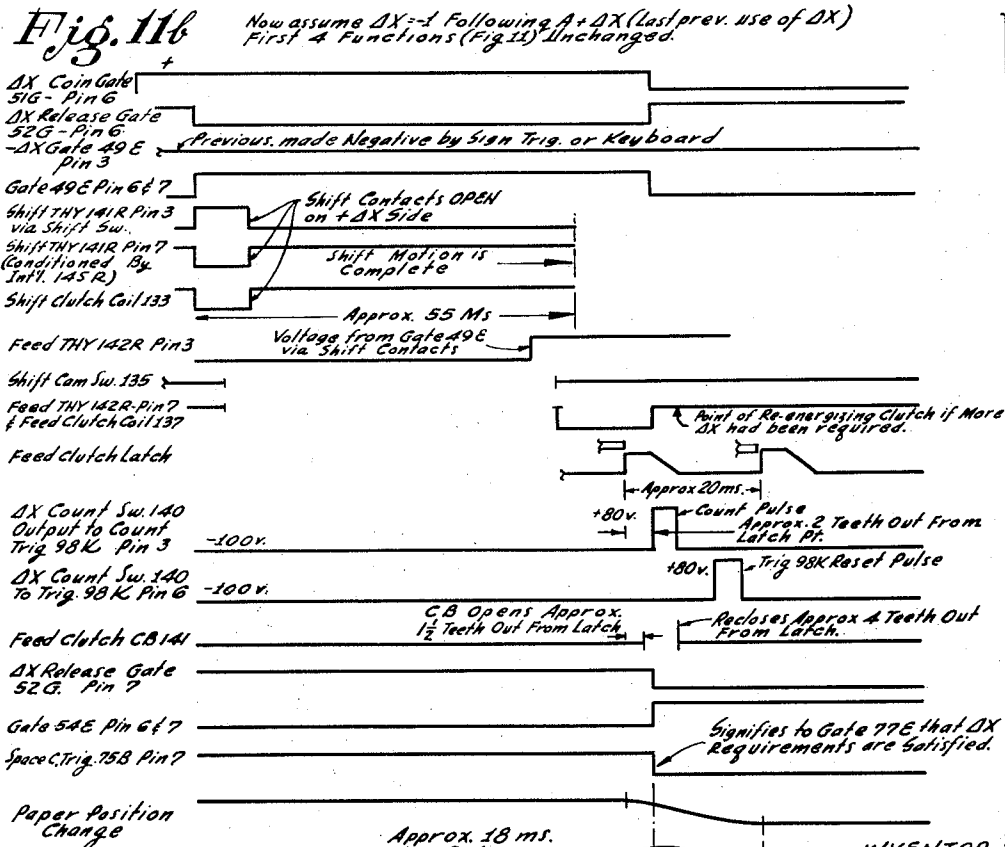 Fig. 11b
Now assume ΔX=-1 Following A+ΔX (Last prev. use of ΔX)
First 4 Functions (Fig 11) Unchanged.
+
ΔX Coin Gate
51G - Pin 6
ΔX Release Gate
52G - Pin 6
Previous. made Negative by Sign Trig. or Keyboard
-ΔX Gate 49E
Pin 3
Gate 49E Pin 6 & 7
Shift Contacts OPEN
on + ΔX Side
Shift THY 141R Pin 3
via Shift Sw.
Shift THY 141R Pin 7
(Conditioned By
Int'l. 145R)
Shift Motion is
Complete
Shift Clutch Coil 133
Approx. 55 Ms
Feed THY 142R Pin 3
Voltage from Gate 49E
via Shift Contacts
Shift Cam Sw. 135
Feed THY 142R-Pin 7
& Feed Clutch Coil 137
Point of Re-energizing Clutch if More
ΔX had been required.
Feed Clutch Latch
Approx 20 ms.
ΔX Count Sw. 140
Output to Count
Trig 98K Pin 3
-100v.
+80v.
Count Pulse
Approx. 2 Teeth Out From
Latch Pt.
ΔX Count Sw. 140
To Trig. 98K Pin 6
-100v.
+80v.
Trig 98K Reset Pulse
CB Opens Approx.
1½ Teeth Out From Latch
Feed Clutch CB 141
Recloses Approx 4 Teeth Out
From Latch.
ΔX Release Gate
52G. Pin 7
Gate 54E Pin 6 & 7
Signifies to Gate 77E that ΔX
Requirements are Satisfied.
Space C. Trig. 75B Pin 7
Paper Position
Change
Approx. 18 ms.
INVENTOR